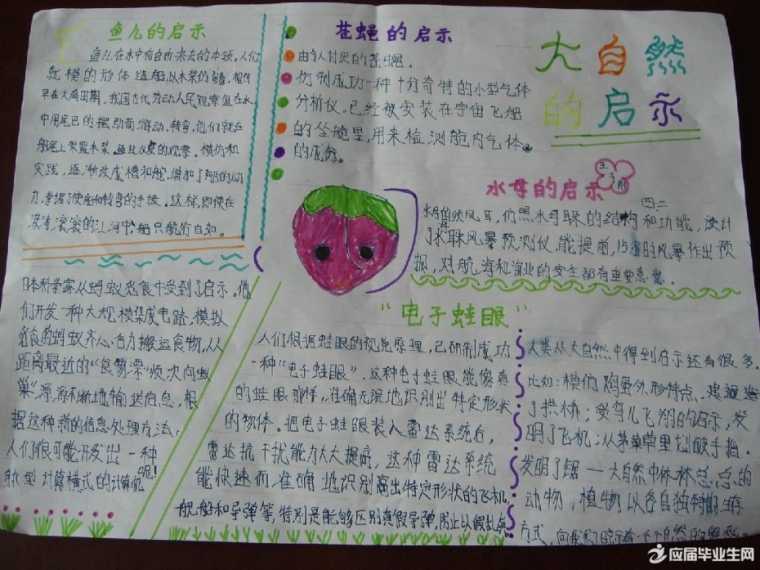 鱼儿的启示
鱼儿在水中有自由来去的本领,人们
就模仿形体造船,以木桨仿鳍。相传
早在大禹时期,我国古代劳动人民观察鱼在水
中用尾巴的摇动而游动、转弯,他们就在
船尾上架置木桨。通过反复的观察、模仿和
实践,逐渐改成橹和舵,增加了船的动
力,掌握了使船转弯的手段。这样,即使在
滚滚的江河中,船只能航行自如。
苍蝇的启示
由令人讨厌的苍蝇,
仿制成功一种十分奇特的小型气体
分析仪。已经被安装在宇宙飞船
的座舱里,用来检测舱内气体
的成分。
大自然
的启示
水母的启示
水母的顺风耳,仿照水母耳朵的结构和功能,设计
了水母耳风暴预测仪,能提前15小时对风暴作出预
报,对航海和渔业的安全都有重要意义。
日本科学家从蚂蚁觅食中受到了启示。他
们开发一种大规模集成电路,模拟
觅食的蚂蚁齐心合力搬运食物,从
距离最近的“食物源”依次向蚁
巢”源源不断地输送信息,根
据这种新的信息处理方法,
人们很可能开发出一种
新型计算模式的计算机呢!
“电子蛙眼”
人们根据蛙眼的视觉原理,已研制成功
一种“电子蛙眼”。这种电子蛙眼能像真
的蛙眼那样,准确无误地识别出特定形状
的物体。把电子蛙眼装入雷达系统后,
雷达抗干扰能力大大提高,这种雷达系统
能快速而准确地识别出特定形状的飞机
舰船和导弹等,特别是能够区别真假导弹,防止以假乱真
人类从大自然中得到启示还有很多,
比如:模仿
了拱桥;受鸟儿飞翔的启示,发
明了飞机;从茅草叶里划破手指,
发明了锯——大自然中林林总总的
动物,植物以各自独特的生存
方式,向我们
应届毕业生网